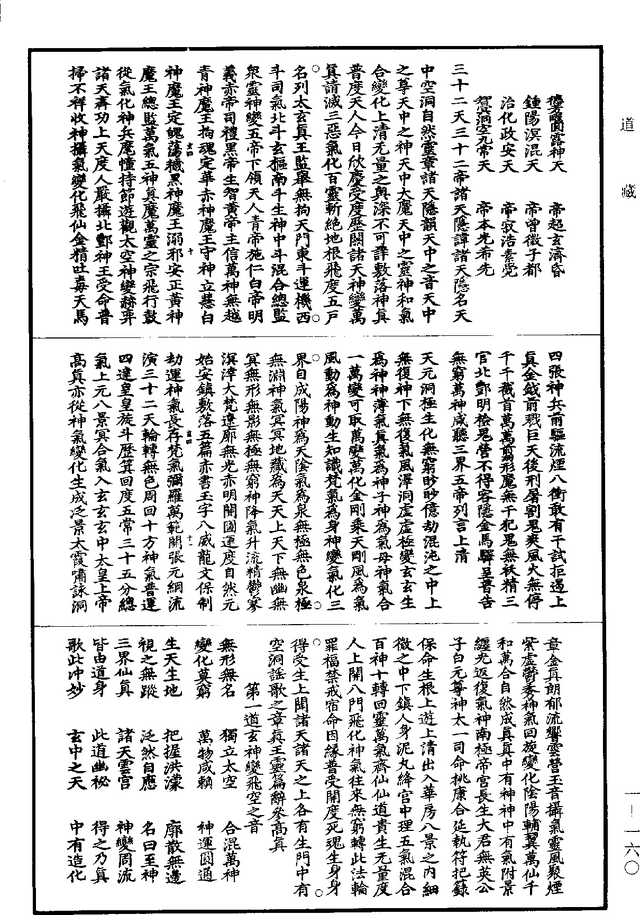 道藏
圓露神天 帝超玄濟昏
鍾陽溟混天 帝曾微子都
治化政安天 帝寂浩素党
洞空九帝天 帝本光希先
三十二天三十二帝諸天隱諱諸天隱名天
中空洞自然靈章諸天隱韻天中之音天中
之尊天中之神天中大魔天中之靈神和氣
合變化上清無量之奧深不可詳敷落神真
普度天人今日欣慶受度歷關諸天神變萬
真請滅三惡氣化百靈斬絕地根飛度五戶
名列太玄真王監舉無拘天門東斗運機西
斗司氣北斗玄樞南斗生神中斗混合總監
衆靈神變五帝下領天人青帝施仁白帝明
義赤帝司禮黑帝生智黃帝主信萬神無越
青神魔王拘魂定華赤神魔王守神立慧白
神魔王定魄蕩穢黑神魔王溺邪安正黃神
魔王總監萬氣五神真魔萬靈之宗飛行鼓
從氣化神兵魔幢持節遊觀太空神變赫弈
諸天齊功上天度人嚴攝北酆神王受命普
掃不祥收神攝氣變化飛仙金精吐毒天馬
四張神兵前驅流煙八衝敢有干試拒遏上
真金鉞前戮巨天後刑屠割鬼爽風火無停
千千截首萬萬剪形魔無干犯鬼無妖精三
官北酆明檢鬼營不得容隱金馬驛呈普告
無窮萬神咸聽三界五帝列言上清
天元洞極生化無窮眇眇億劫混沌之中上
無復神下無復氣風澤洞虛虛極變玄玄生
爲神神薄氣真氣爲神子神爲氣母神氣合
一萬變可取萬變萬化金剛乘天剛風爲氣
風動爲神動生知識梵氣爲身神變氣化三
界自成陽神爲天陰氣爲泉無極無色泉極
無淵神氣冥冥地藏爲天天上天下無幽無
冥無形無影無極無窮神降氣升流精鬱寥
溟滓大梵遼廓無光赤明開圖運度自然元
始安鎮敷落五篇赤書玉字八威龍文保制
劫運神氣長存梵氣彌羅萬範開張元綱流
演三十二天輪轉無色周回十方神氣普運
四達皇皇旋斗歷箕回度五常三十五分總
氣上元八景冥合氣入玄玄玄中太皇上帝
高真亦從神氣變化生成泛景太霞嘯詠洞
章金真朗郁流響雲營玉音攝氣靈風聚煙
紫虛鬱秀神氣回旋變化陰陽輔翼萬仙千
和萬合自然成真真中有神神中有氣附景
纏光返復氣神南極帝宮長生大君無英公
子白元尊神太一司命桃康合延執符把籙
保命生根上遊上清出入華房八景之內細
微之中下鎮人身泥丸絳宮中理五氣混合
百神十轉回靈萬氣齊仙仙道貴生無量度
人上開八門飛化神氣往來無窮轉此法輪
罪福禁戒宿命因緣普受開度死魂生身身
得受生上聞諸天諸天之上各有生門中有
空洞謠歌之章真王靈篇辭參高真
第一道玄神變飛空之音
無形無名 獨立太空 合混萬神
變化莫窮 萬物咸賴 神運圓通
生天生地 把握洪濛 廓散無邊
視之無蹤 泛然自應 名曰至神
三界仙真 諸天雲宮 神變周流
皆由道身 此道幽秘 得之乃真
歌此冲妙 玄中之天 中有造化
一－一六〇